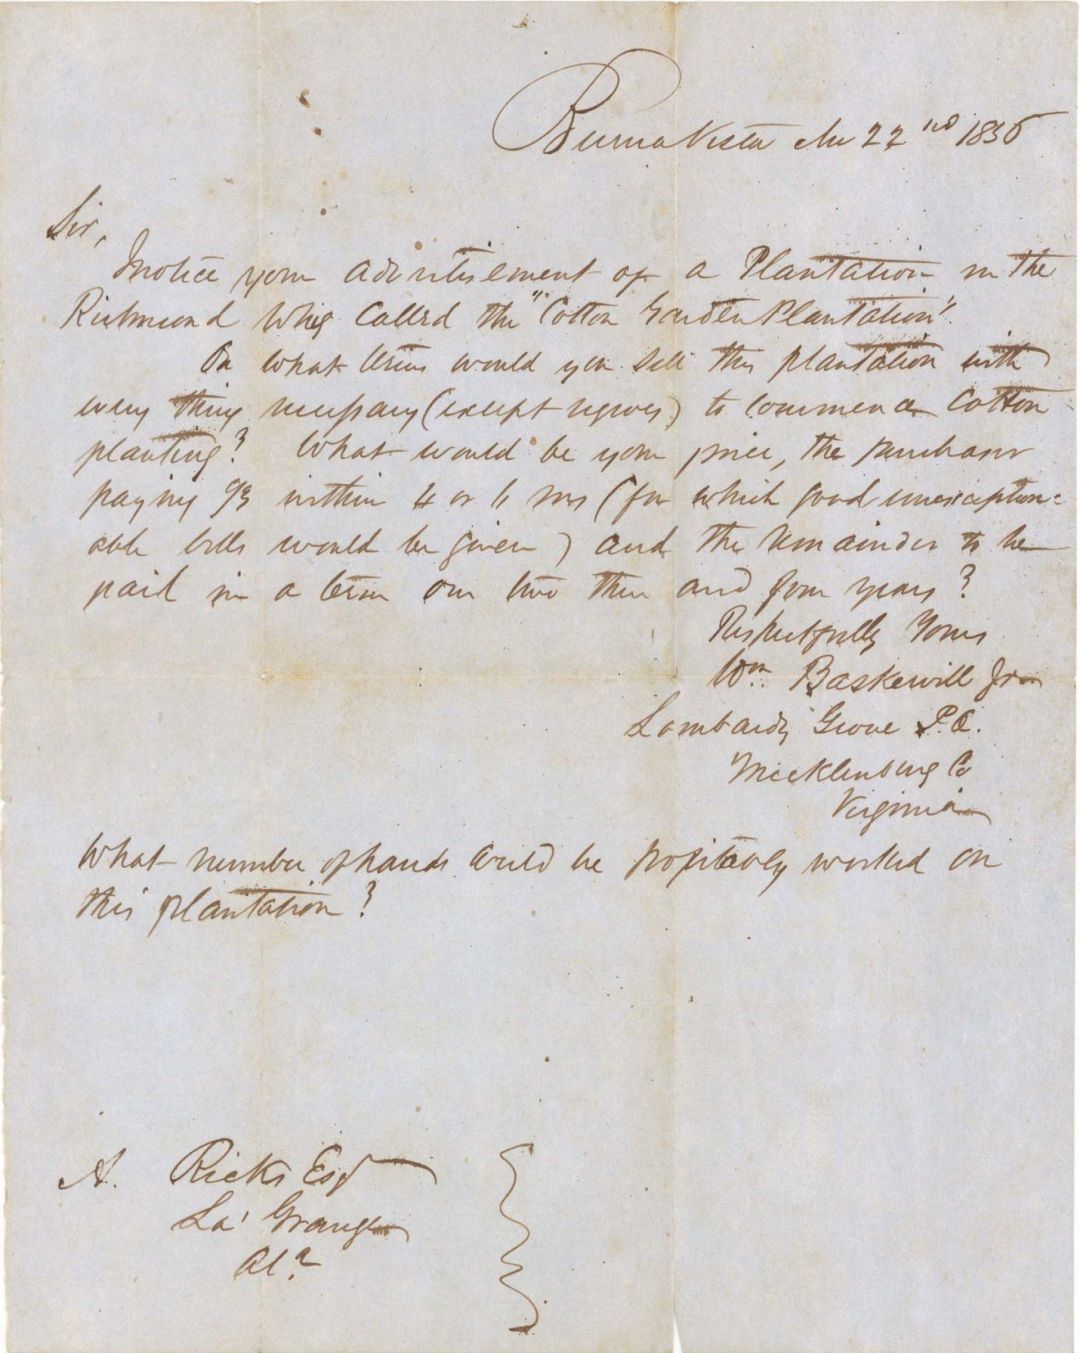 Buena Vista 22nd 1836
Sir,
I notice your advertisement of a Plantation in the
Richmond Whig Called the "Cotton Garden Plantation".
On what terms would you sell this plantation with
every thing necessary (except negroes) to commence Cotton
planting? What would be your price, the purchaser
paying within 4 or 6 ms (for which good unexception=
able bills would be given) and the remainder to be
paid in a term one two three and four years?
Respectfully Yours
Wm. Baskervill Jr
Lombardy Grove P.O.
Mecklenburg Co
Virginia
What number of hands could be profitably worked on
this plantation?
A. Ricks Esq
La' Grange
Ala